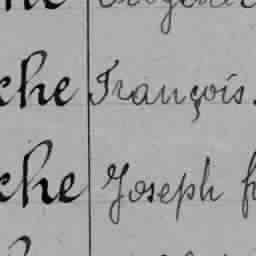 che François.
che Joseph